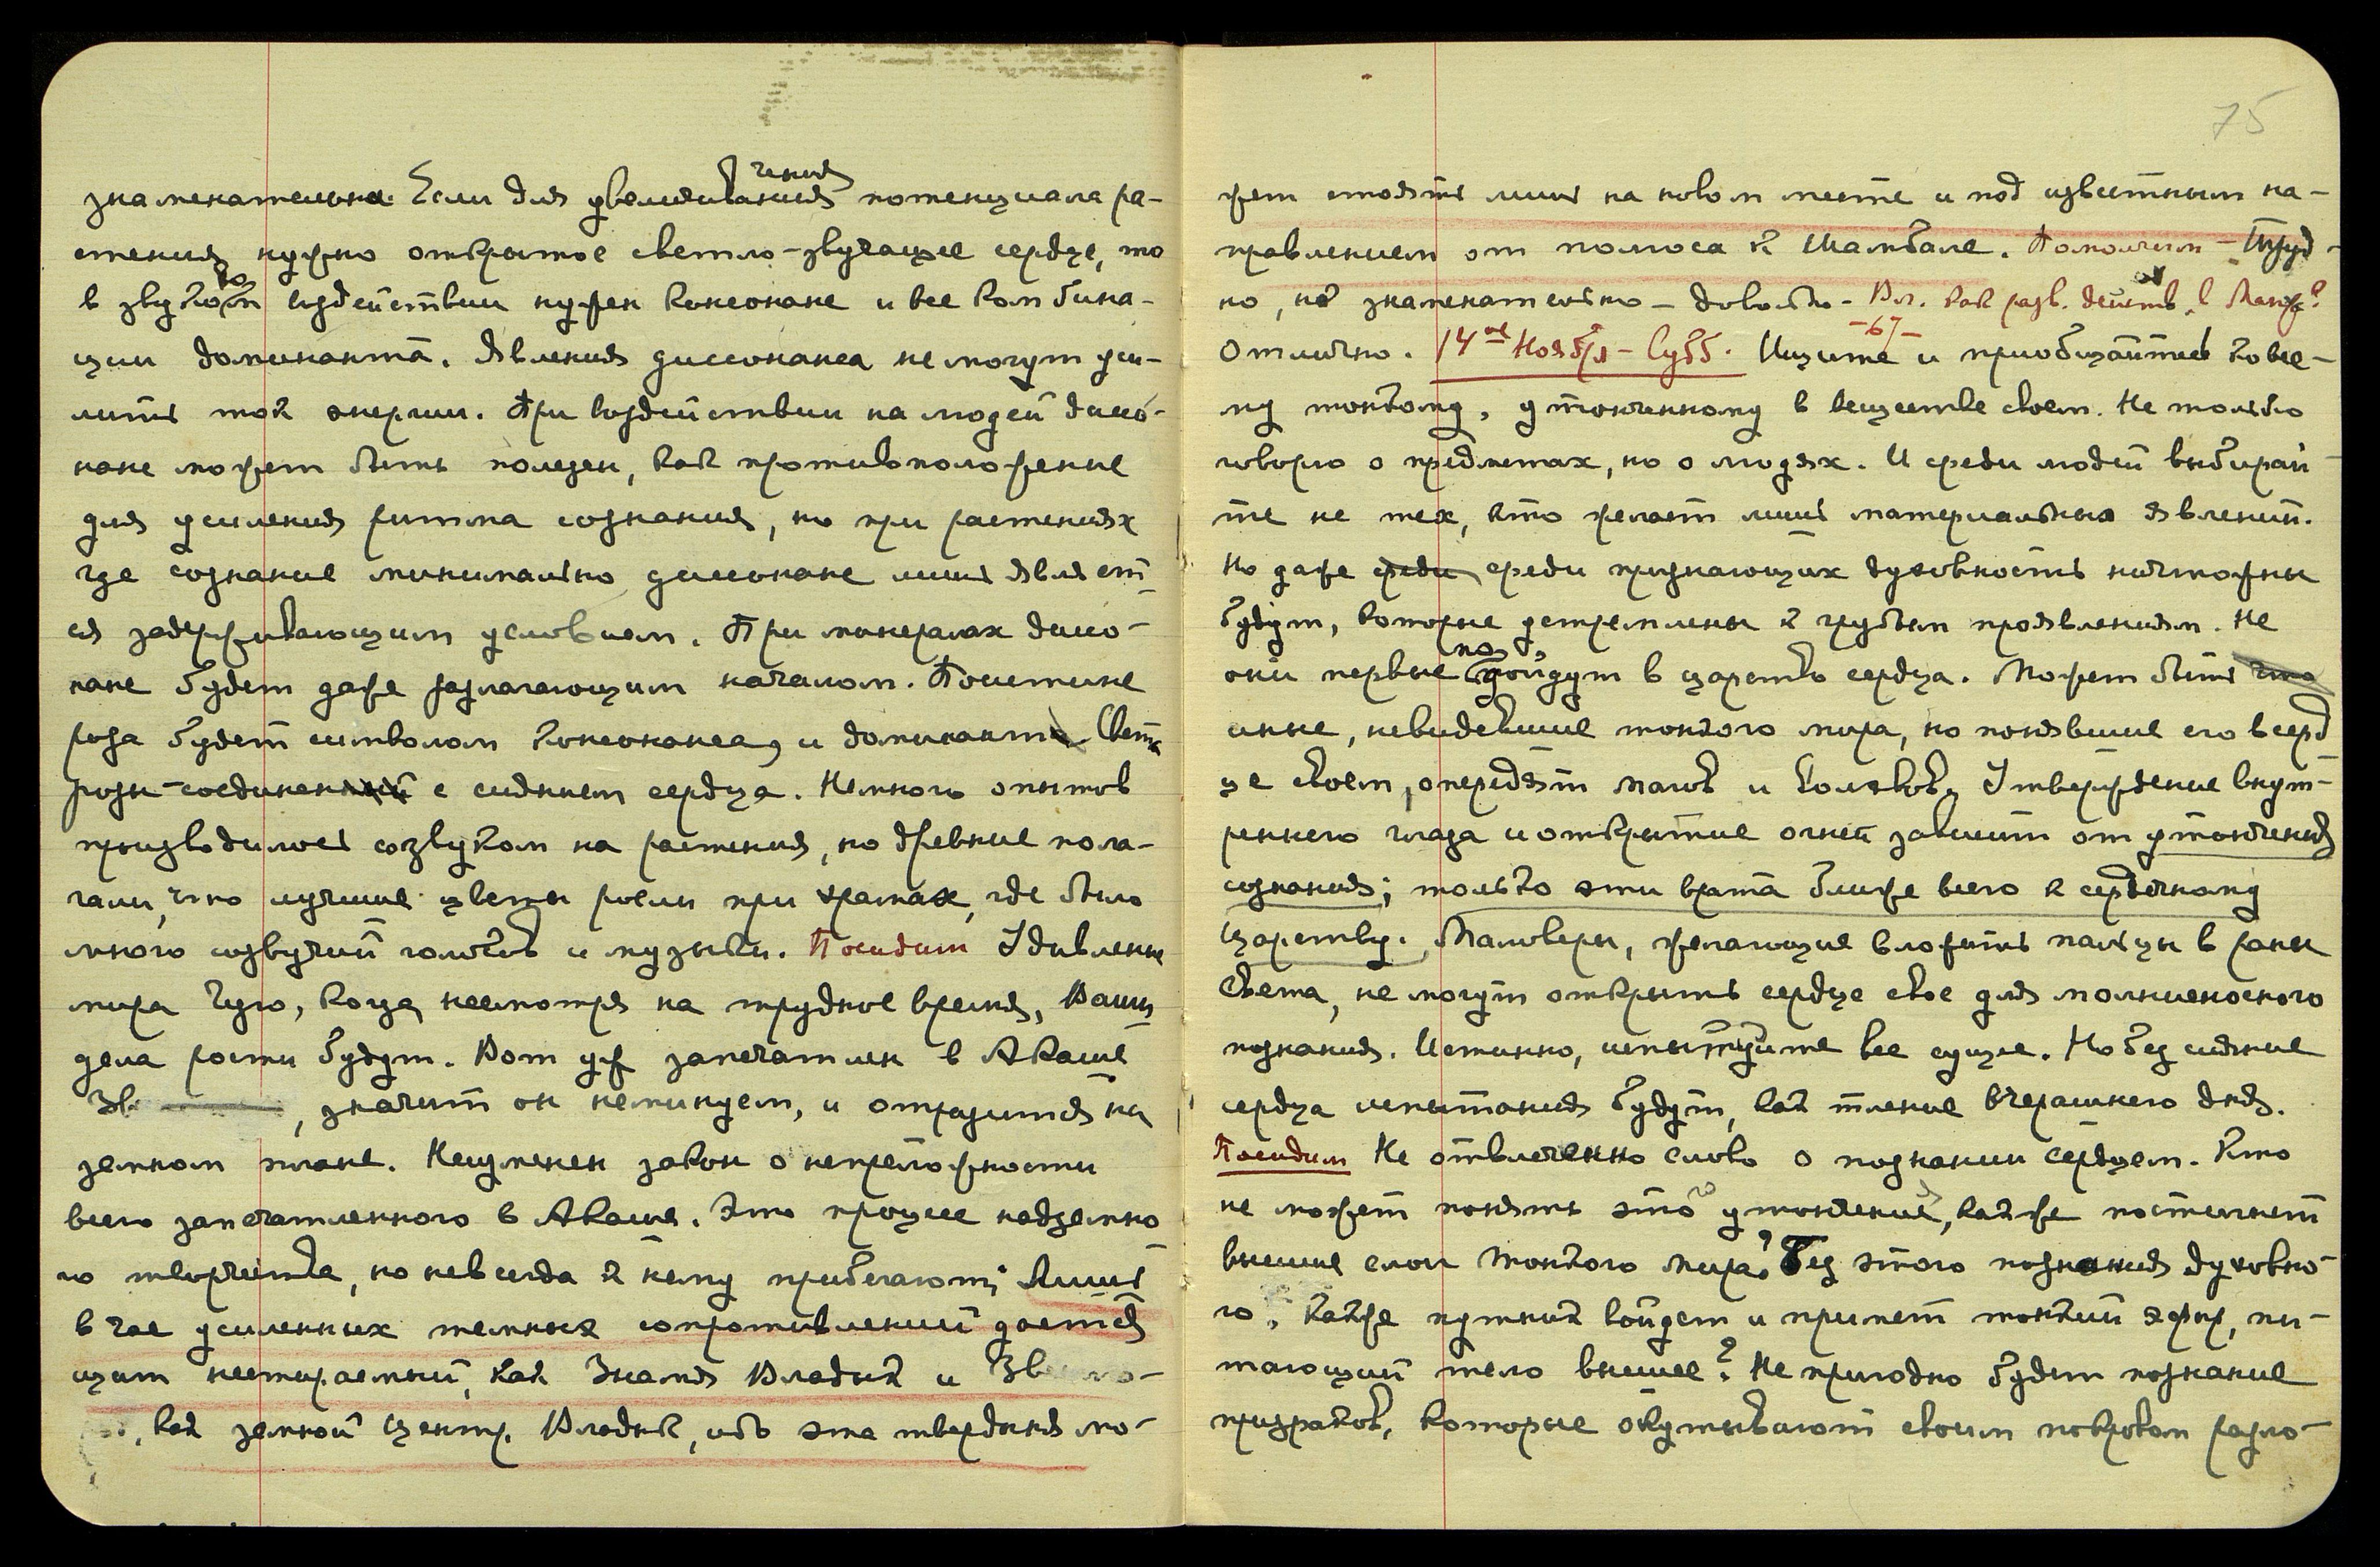 знаменательна. Если для увеличения потенциала ра-
стения нужно открытое светло-звучащее сердце, то
в звуковом воздействии нужен консонанс и все комбина-
ции доминанта. Явления диссонанса не могут уси-
лить ток энергии. При воздействии на людей диссо-
нанс может быть полезен, как противоположение
для усиления ритма сознания, но при растениях
где сознание минимально диссонанс лишь являет-
ся задерживающим условием. При минералах диссо-
нанс будет даже разлагающим началом. Поистине
роза будет символом консонанса, и доминанта Света
розы соединен с сиянием сердца. Немного опытов
производилось созвуком на растения, но древние пола-
гали, что лучшие цветы росли при храмах, где было
много созвучий голосов и музыки. Посидим Удивлены
мира Чуго, когда несмотря на трудное время, Ваши
дела расти будут. Вот уж запечатлен в Акаше
Зв , значит он неминуем, и отразится на
земном плане. Неизменен закон о непреложности
всего запечатленного в Акаше. Это прочнее надземно-
го творчества, но не всегда к нему прибегают; Лишь
в час усиленных темных сопротивлений дается
щит нестираемый, как Знамя Владык и Зв
, как земной центр. Владык, ибо эта твердыня мо-
75
жет стоять лишь на новом месте и под известным на-
правлением от полюса к Шамбале. Помолчим – Труд-
но, но знаменательно – довольно – Вл. как разв. действ. в Манж?
–67–
Отлично. 14ое Ноября – Субб. Ищите и приобщайтесь ко все-
му тонкому, утонченному в веществе своем. Не только
говорю о предметах, но о людях. И среди людей выбирай-
те не тех, кто желает лишь материальных явлений.
Но даже среди среди признающих духовность ничтожны
будут, которые устремлены к грубым проявлениям. Не
они первые подойдут в царство сердца. Может быть что
иные, невидевшие тонкого мира, но понявшие его в серд-
це своем, опередят магов и. Утверждение внут-
реннего глаза и открытие огней зависит от утончения
сознания; только эти врата ближе всего к сердечному
царству. Маловеры, желающие вложить пальцы в раны
Света, не могут открыть сердце свое для молниеносного
познания. Истинно, испытуйте все сущее. Но без сияния
сердца испытания будут, как тление вчерашнего дня.
Посидим Не отвлеченно слово о познании сердцем. Кто
не может понять этого утончения, как же постигнет
высшие слои тонкого мира? Без этого познания духовно-
го, как же путник войдет и примет тонкий эфир, пи-
тающий тело высшее? Не пригодно будет познание
призраков, которые окутывают своим покровом разло-